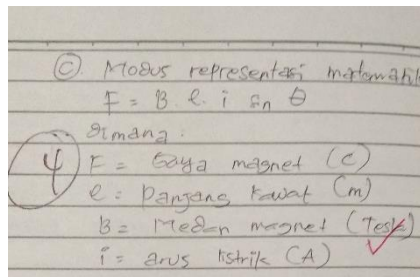 © Modus representasi matemati
F = B. l. i sin θ
dimana :
4
F = Gaya magnet (C)
l = Panjang kawat (m)
B = Medan magnet (Tesla)
i = arus listrik (A)